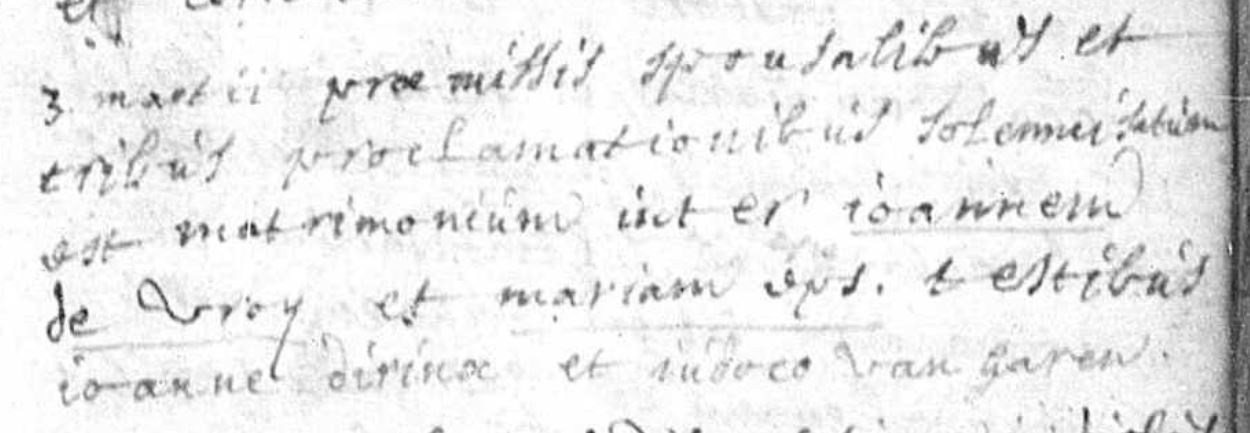 et
3 martii præmissis sponsalibus et
tribus proclamationibus solemnisatum
est matrimonium inter ioannem
de vroy et mariam eps. testibus
ioanne dirinx et iudoco van haren.